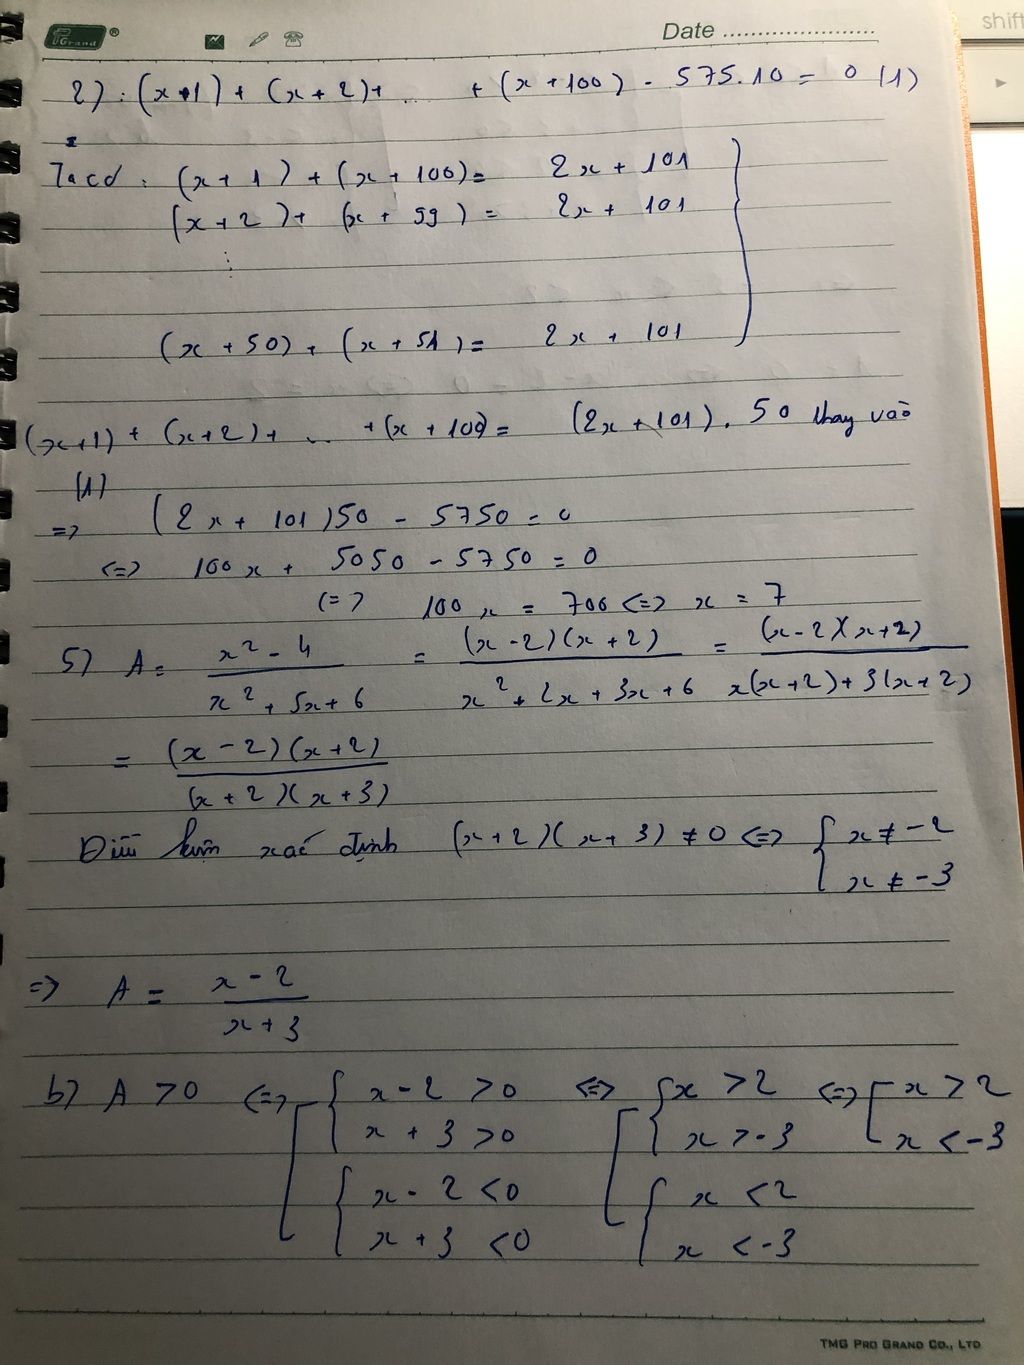 PGrand ®
Date ........................
shift
2) : (x+1) + (x+2) + ... + (x+100) - 575.10 = 0 (1)
Ta có : (x+1) + (x+100) = 2x + 101
(x+2) + (x+99) = 2x + 101
⋮
(x+50) + (x+51) = 2x + 101
(x+1) + (x+2) + ... + (x+100) = (2x+101). 50 thay vào
(1)
=> (2x + 101)50 - 5750 = 0
<=> 100x + 5050 - 5750 = 0
<=> 100x = 700 <=> x = 7
5) A = (x² - 4)/(x² + 5x + 6) = ((x-2)(x+2))/(x² + 2x + 3x + 6) = ((x-2)(x+2))/(x(x+2)+3(x+2))
= ((x-2)(x+2))/((x+2)(x+3))
Điều kiện xác định (x+2)(x+3) ≠ 0 <=> { x ≠ -2
x ≠ -3
=> A = (x-2)/(x+3)
b) A > 0 <=> [ { x-2 > 0 <=> [ { x > 2 <=> [ x > 2
x + 3 > 0 x > -3 x < -3
{ x - 2 < 0 { x < 2
x + 3 < 0 x < -3
TMG Pro Grand Co., Ltd